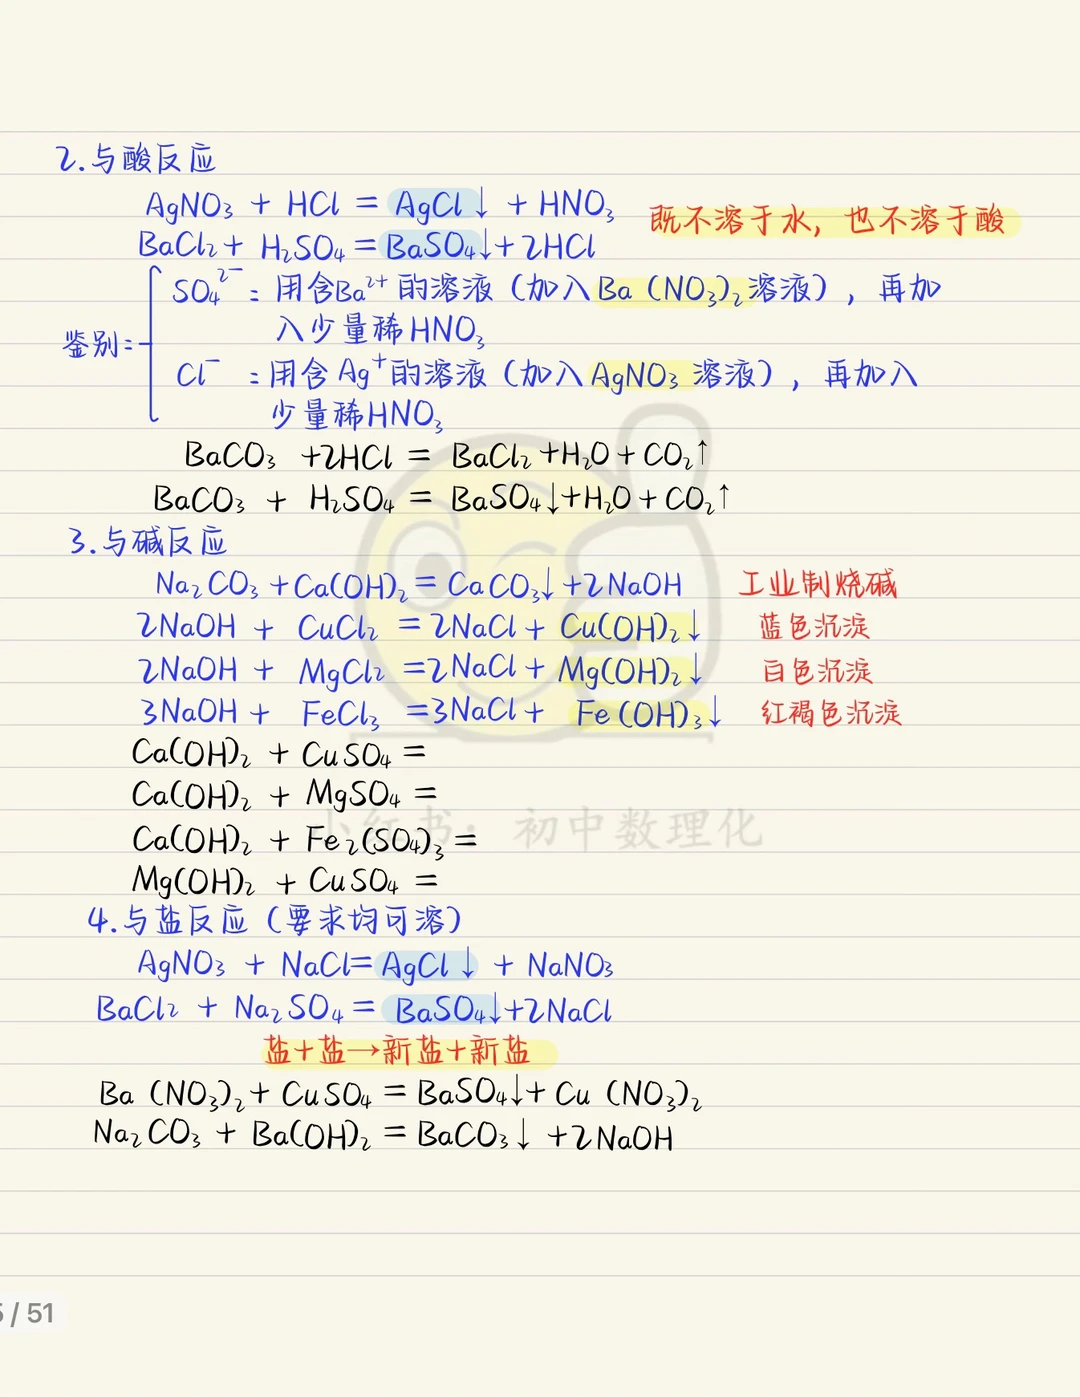 2.与酸反应
AgNO₃ + HCl = AgCl↓ + HNO₃
既不溶于水，也不溶于酸
BaCl₂ + H₂SO₄ = BaSO₄↓+2HCl
鉴别:
SO₄²⁻ : 用含Ba²⁺的溶液（加入Ba (NO₃)₂溶液），再加
入少量稀HNO₃
Cl⁻ : 用含Ag⁺的溶液（加入AgNO₃溶液），再加入
少量稀HNO₃
BaCO₃ +2HCl = BaCl₂+H₂O+CO₂↑
BaCO₃ + H₂SO₄ = BaSO₄↓+H₂O+CO₂↑
3.与碱反应
Na₂CO₃+Ca(OH)₂=CaCO₃↓+2NaOH 工业制烧碱
2NaOH + CuCl₂ =2NaCl+Cu(OH)₂↓ 蓝色沉淀
2NaOH + MgCl₂ =2NaCl+Mg(OH)₂↓ 白色沉淀
3NaOH + FeCl₃ =3NaCl+ Fe(OH)₃↓ 红褐色沉淀
Ca(OH)₂ + CuSO₄ =
Ca(OH)₂ + MgSO₄ =
小红书：初中数理化
Ca(OH)₂ + Fe₂(SO₄)₃ =
Mg(OH)₂ + CuSO₄ =
4.与盐反应（要求均可溶）
AgNO₃ + NaCl=AgCl↓ + NaNO₃
BaCl₂ + Na₂SO₄ = BaSO₄↓+2NaCl
盐+盐→新盐+新盐
Ba (NO₃)₂+ CuSO₄ = BaSO₄↓+ Cu (NO₃)₂
Na₂CO₃ + Ba(OH)₂ = BaCO₃↓ +2NaOH
/ 51